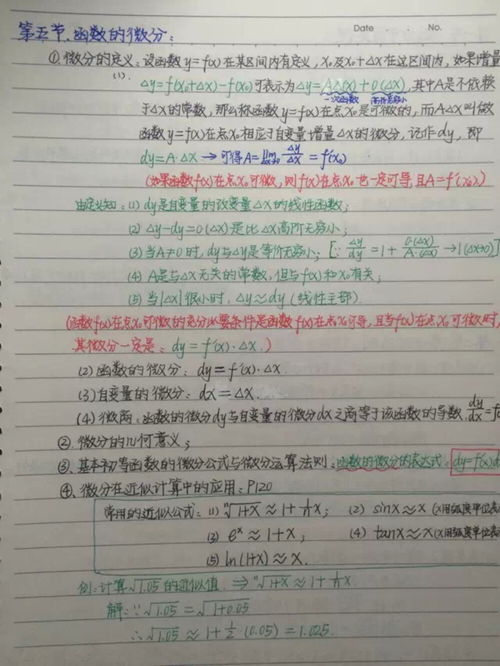 Date No.
第五节、函数的微分:
①微分的定义: 设函数y=f(x)在某区间内有定义, x₀及x₀+Δx在这区间内, 如果增量
(1). Δy=f(x₀+Δx)-f(x₀)可表示为Δy=AΔx+o(Δx), 其中A是不依赖
一次函数 高阶无穷小
于Δx的常数, 那么称函数y=f(x)在点x₀是可微的, 而AΔx叫做
函数y=f(x)在点x₀相应于自变量增量Δx的微分, 记作dy, 即
dy=A·ΔX → 可得A=lim Δx→0 Δy/Δx = f'(x₀)
(如果函数f(x)在点x₀可微, 则f(x)在点x₀也一定可导, 且A=f'(x₀).)
由定义知: (1) dy是自变量的改变量ΔX的线性函数;
(2) Δy-dy=o(ΔX)是比ΔX高阶无穷小;
(3)当A≠0时, dy与Δy是等价无穷小; [∵ Δy/dy = 1 + o(ΔX)/A·ΔX → 1(ΔX→0)]
(4) A是与ΔX无关的常数, 但与f(x)和x₀有关;
(5)当|ΔX|很小时, Δy≈dy (线性主部).
(函数f(x)在点x₀可微的充分必要条件是函数f(x)在点x₀可导, 且当f(x)在点x₀可微时,
其微分一定是: dy=f'(x)·ΔX.)
(2)函数的微分: dy=f'(x)·ΔX.
(3)自变量的微分: dx=ΔX.
(4)微商: 函数的微分dy与自变量的微分dx之商等于该函数的导数. dy/dx=f
②微分的几何意义;
③基本初等函数的微分公式与微分运算法则: 函数的微分的表达式: dy=f'(x)d
④微分在近似计算中的应用: P120
常用的近似公式: (1) ⁿ√1+X ≈ 1+1/n X; (2) sinx≈x (x用弧度单位表
(3) eˣ≈1+X; (4) tanx≈x (x用弧度单位表
(5) ln(1+X)≈X.
例: 计算√1.05的近似值. ⇒ ⁿ√1+X ≈ 1+1/n X.
解: ∵√1.05 = √1+0.05
∴√1.05 ≈ 1+1/2 (0.05) = 1.025.